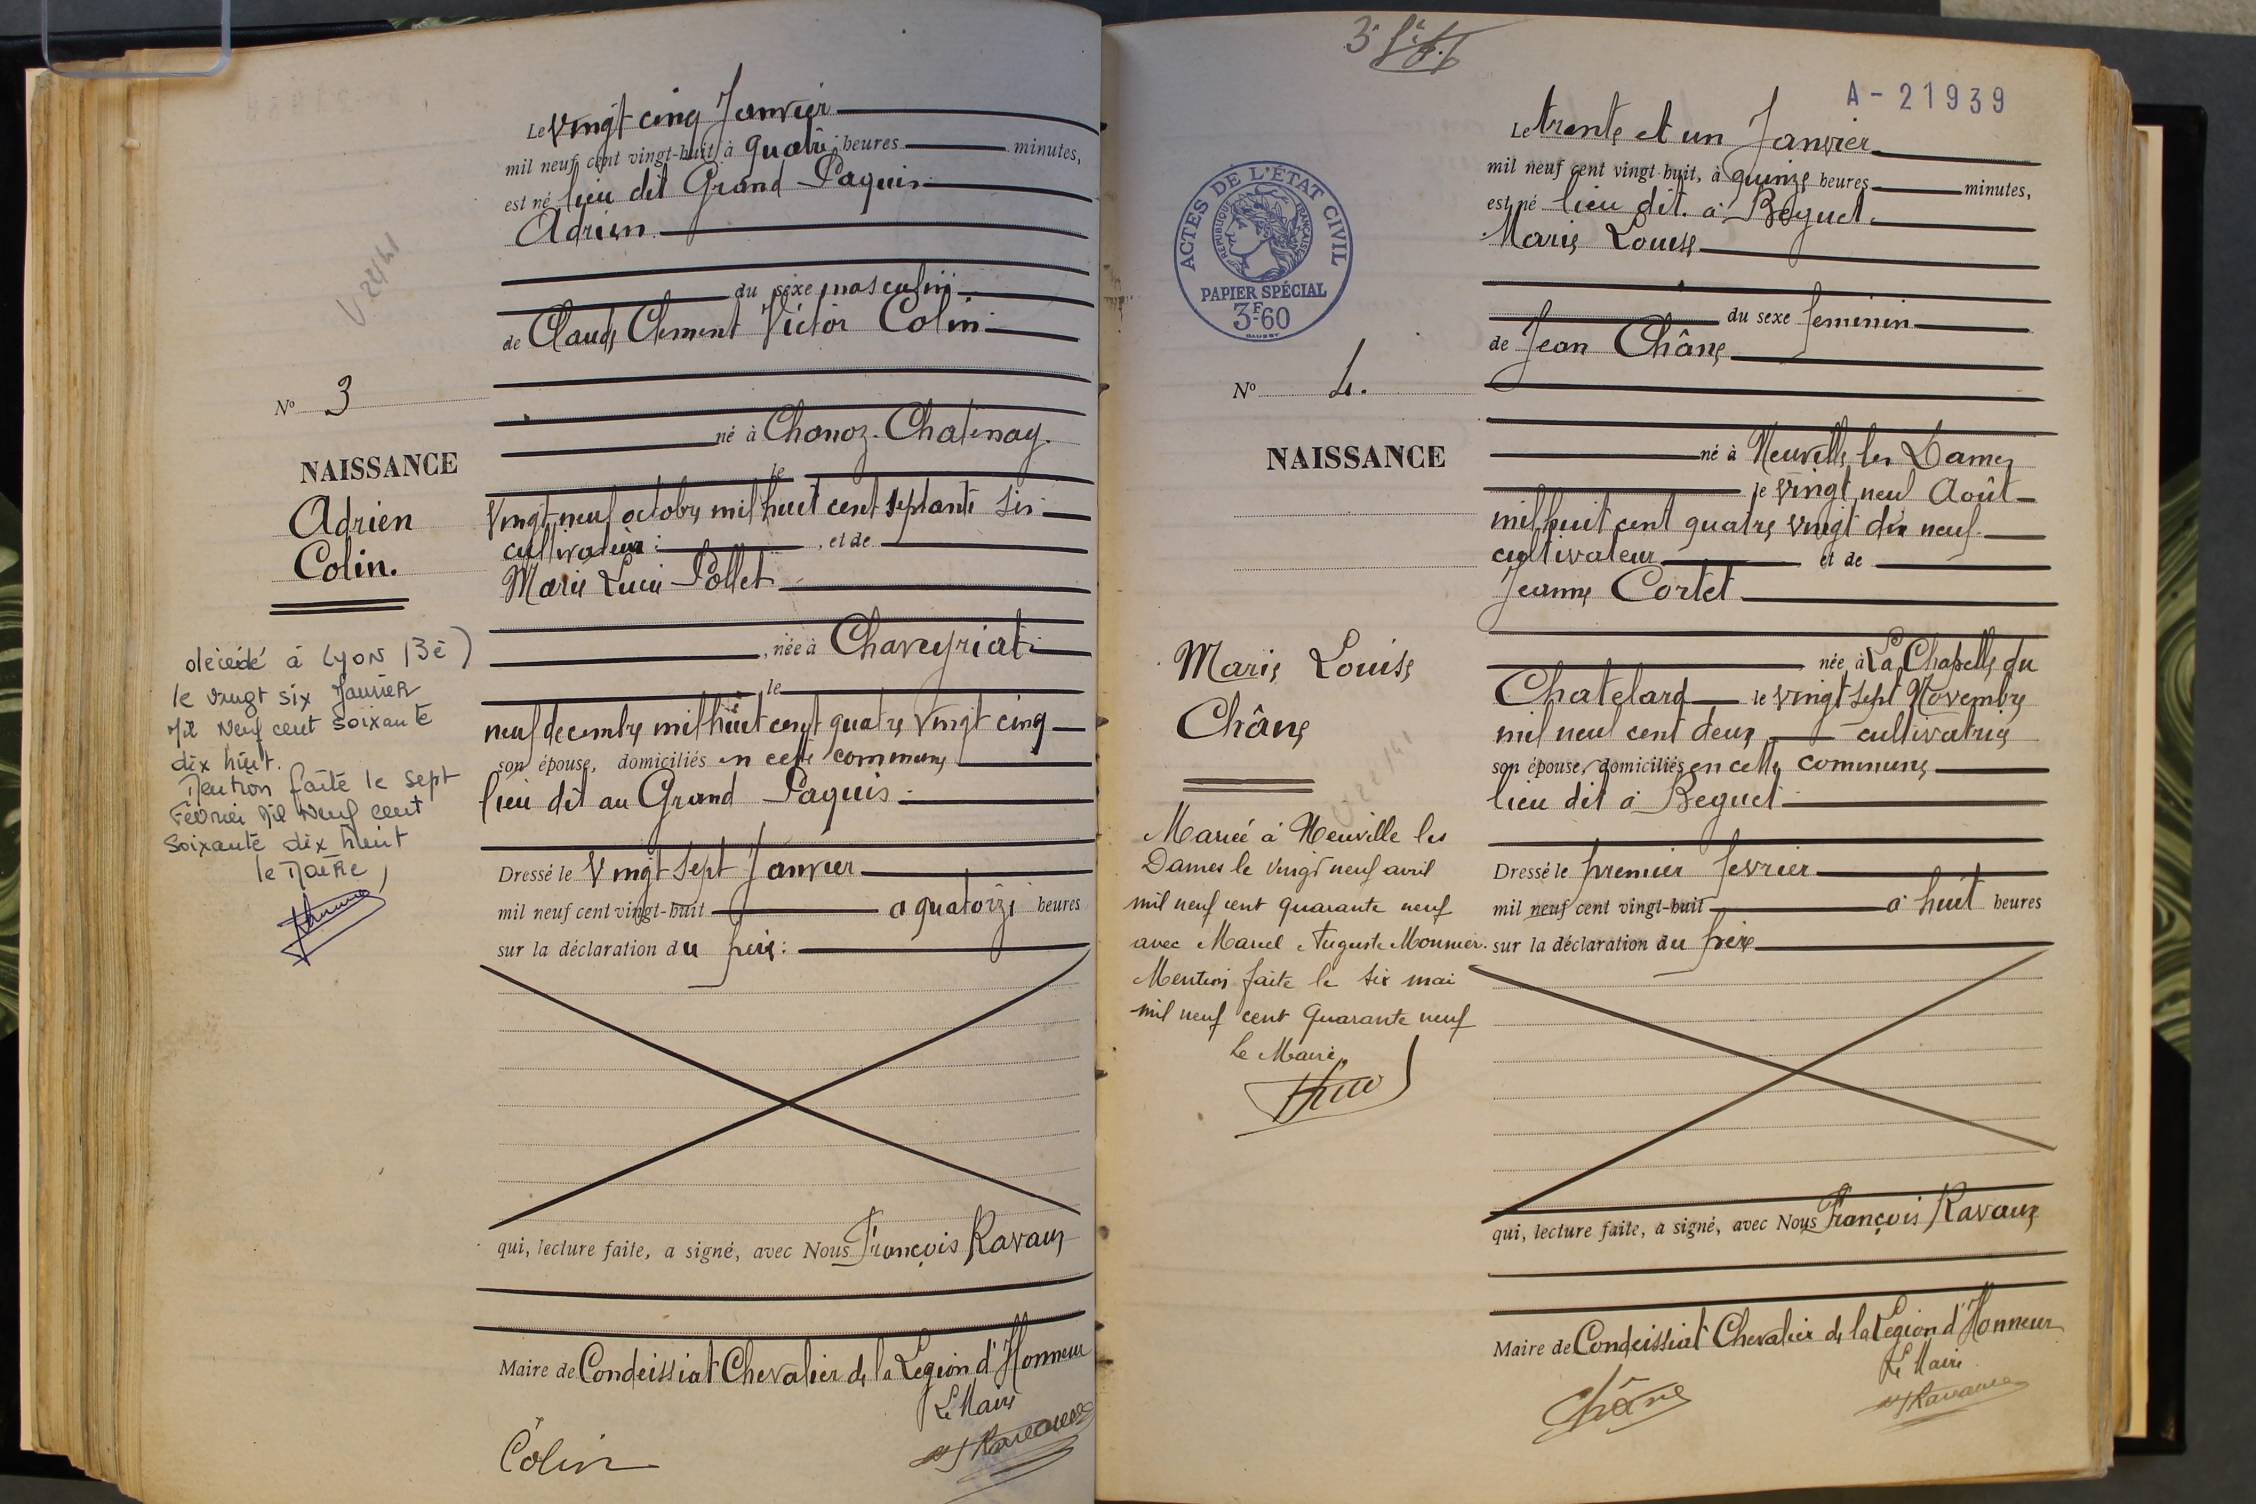 Le vingt cinq Janvier
mil neuf cent vingt-huit à quatre heures minutes,
est né lieu dit Grand Paquis
Adrien
du sexe masculin
de Claude Clement Victor Colin
né à Chanoz-Chatenay.
le
vingt neuf octobre mil huit cent septante six
cultivateur , et de
Marie Lucie Pollet
, née à Chaveyriat
le
neuf decembre mil huit cent quatre vingt cinq
son épouse, domiciliés en cette commune
lieu dit au Grand Paquis
Dressé le vingt sept Janvier
mil neuf cent vingt-huit a quatorze heures
sur la déclaration du père
qui, lecture faite, a signé, avec Nous François Ravaux
Maire de Condeissiat Chevalier de la Légion d'Honneur
Le Maire
Colin
Nº 3
NAISSANCE
Adrien
Colin.
décédé à Lyon (3è)
le vingt six Janvier
Mil Neuf cent soixante
dix huit.
Mention faite le sept
Février Mil Neuf cent
Soixante dix huit
le Maire,
A-21939
ACTES DE L'ÉTAT CIVIL
RÉPUBLIQUE FRANÇAISE
PAPIER SPÉCIAL
3F60
Nº 4.
NAISSANCE
Marie Louise
Châne
Mariée à Neuville les
Dames le vingt neuf avril
mil neuf cent quarante neuf
avec Marcel Auguste Monnier.
Mention faite le six mai
mil neuf cent quarante neuf
Le Maire
Le trente et un Janvier
mil neuf cent vingt-huit, à quinze heures minutes,
est né lieu dit à Beguet
Marie Louise
du sexe feminin
de Jean Châne
né à Neuville les Dames
le vingt neuf Août
mil huit cent quatre vingt dix neuf
cultivateur et de
Jeanne Cortet
née à La Chapelle du
Chatelard le vingt sept Novembre
mil neuf cent deux cultivatrice
son épouse, domiciliés en cette commune
lieu dit à Beguet
Dressé le premier fevrier
mil neuf cent vingt-huit à huit heures
sur la déclaration du père
qui, lecture faite, a signé, avec Nous François Ravaux
Maire de Condeissiat Chevalier de la Légion d'Honneur
Le Maire
Châne